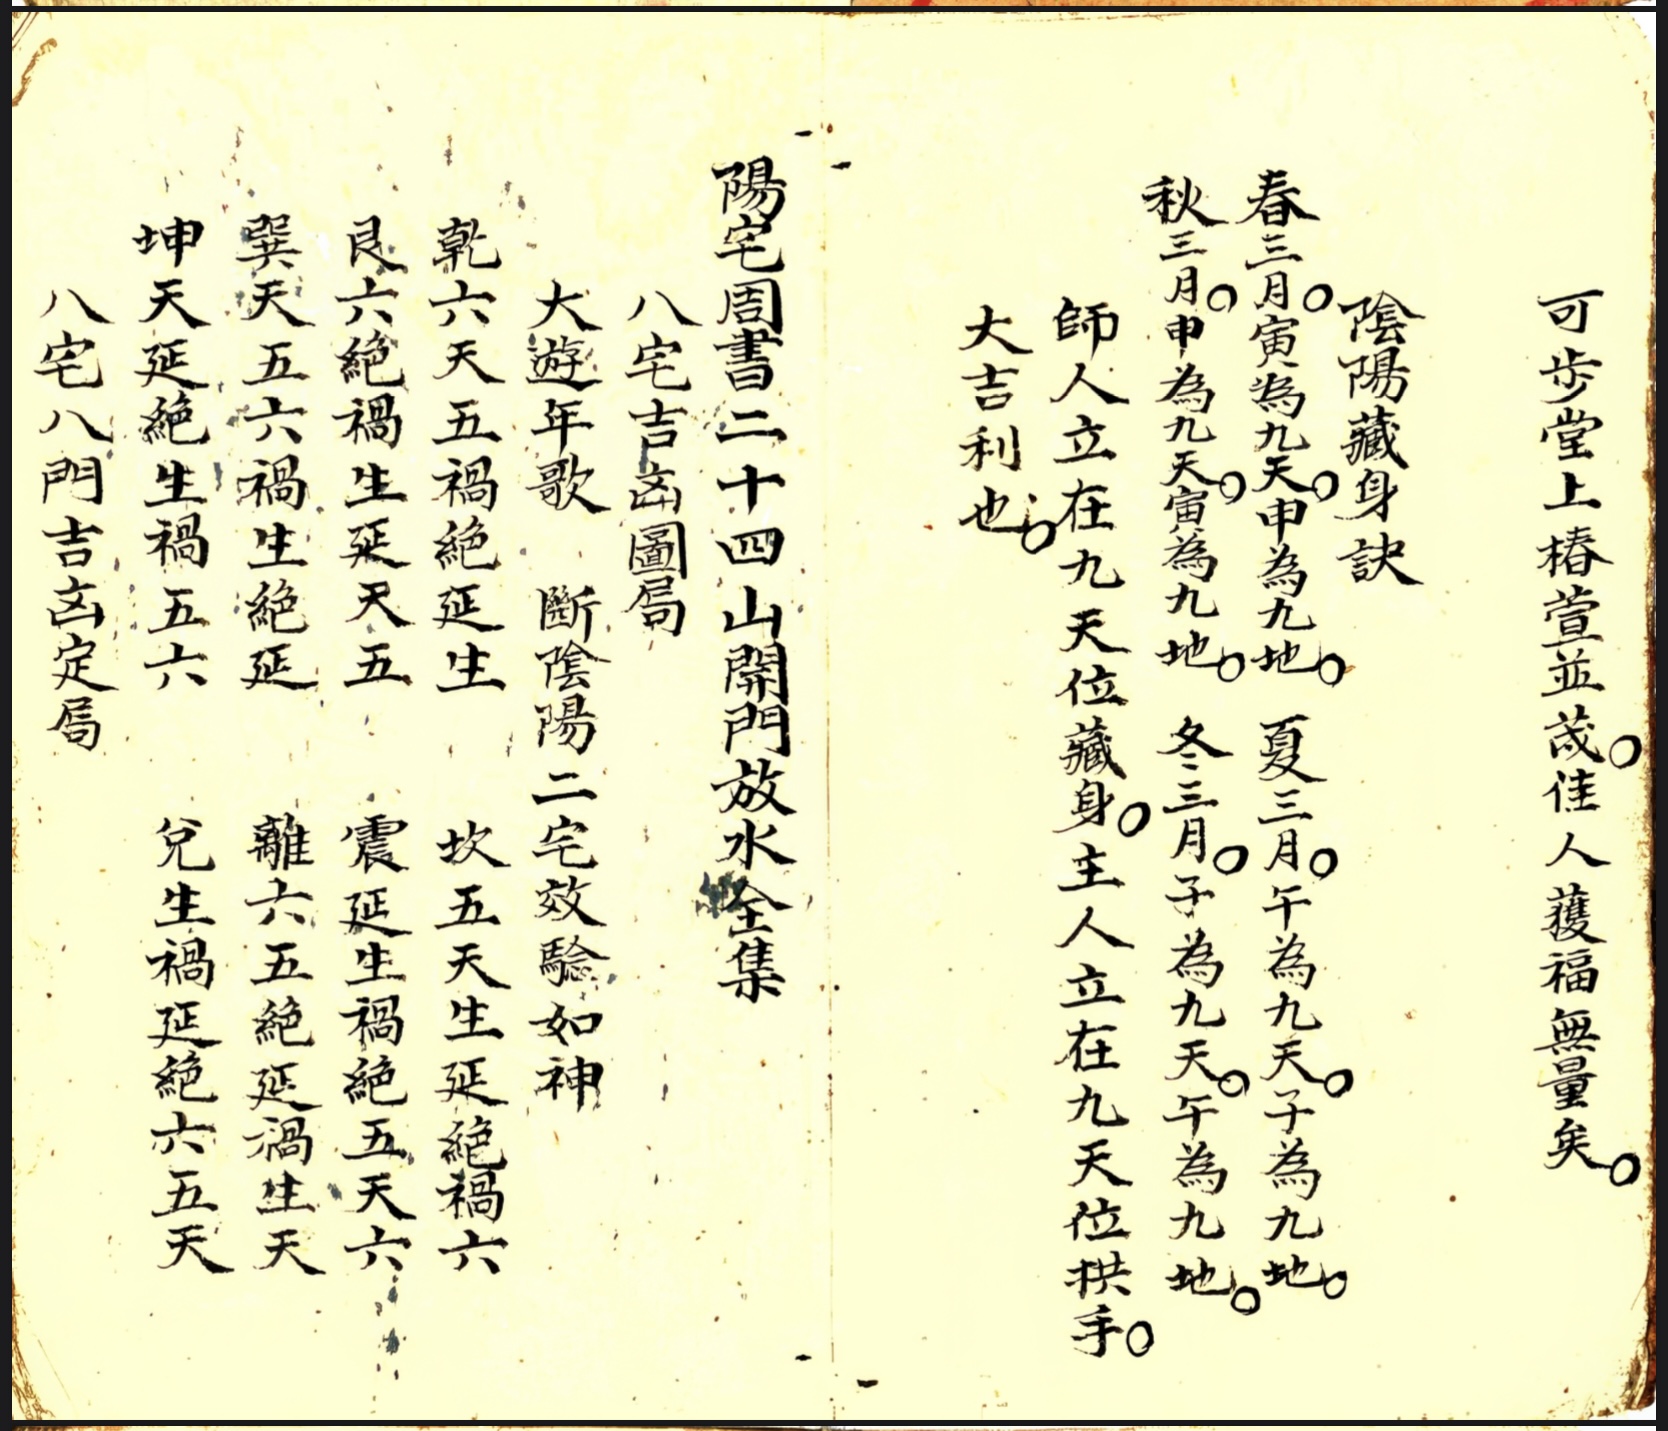 可步堂上椿萱並茂。佳人獲福無量矣。
陰陽藏身訣
春三月。寅為九天。申為九地。 夏三月。午為九天。子為九地。
秋三月。申為九天。寅為九地。 冬三月。子為九天。午為九地。
師人立在九天位藏身。主人立在九天位拱手。
大吉利也。
陽宅周書二十四山開門放水全集
八宅吉凶圖局
大遊年歌 斷陰陽二宅效驗如神
乾六天五禍絕延生 坎五天生延絕禍六
艮六絕禍生延天五 震延生禍絕五天六
巽天五六禍生絕延 離六五絕延禍生天
坤天延絕生禍五六 兌生禍延絕六五天
八宅八門吉凶定局